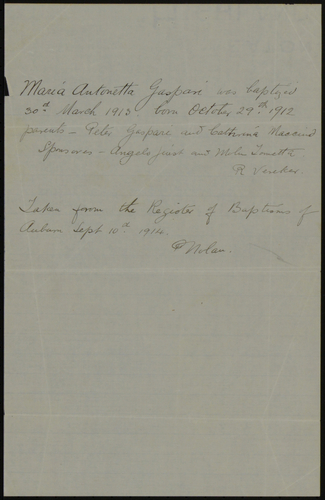 Maria Antonetta Gaspari was baptized
30th March 1913 born October 29th 1912
parents - Peter Gaspari and Catherina
Sponsors - Angelo and
R.
Taken from the Register of Baptisms of
Auburn Sept 10th 1914.
P Nolan.